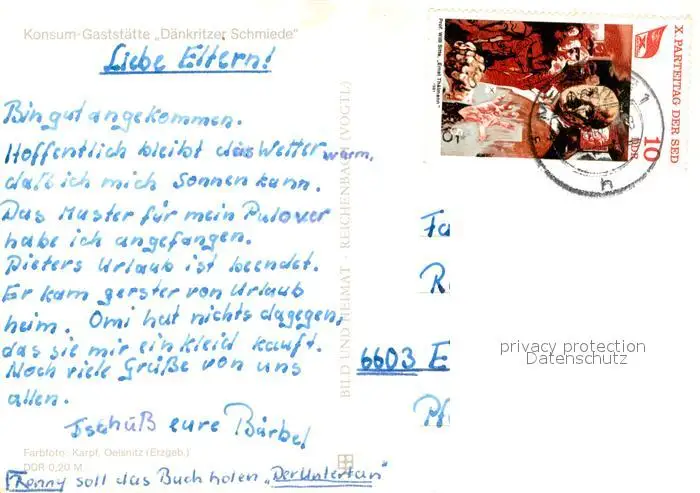 Konsum-Gaststätte "Dänkritzer Schmiede"
Liebe Eltern!
Bin gut angekommen.
Hoffentlich bleibt das Wetter warm,
daß ich mich Sonnen kann.
Das Muster für mein Pulover
habe ich angefangen.
Dieters Urlaub ist beendet.
Er kam gerster von Urlaub
heim. Omi hat nichts dagegen,
das sie mir ein kleid kauft.
Noch viele Grüße von uns
allen.
Tschüß eure Bärbel
Farbfoto: Karpf, Oelsnitz (Erzgeb.)
DDR 0,20 M
Ronny soll das Buch holen "Der Untertan"
BILD UND HEIMAT · REICHENBACH (VOGTL)
Prof. Willi Sitte, "Ernst Thälmann"
X. PARTEITAG DER SED
10
DDR
Fa
R
6603 E
Pf
privacy protection
Datenschutz